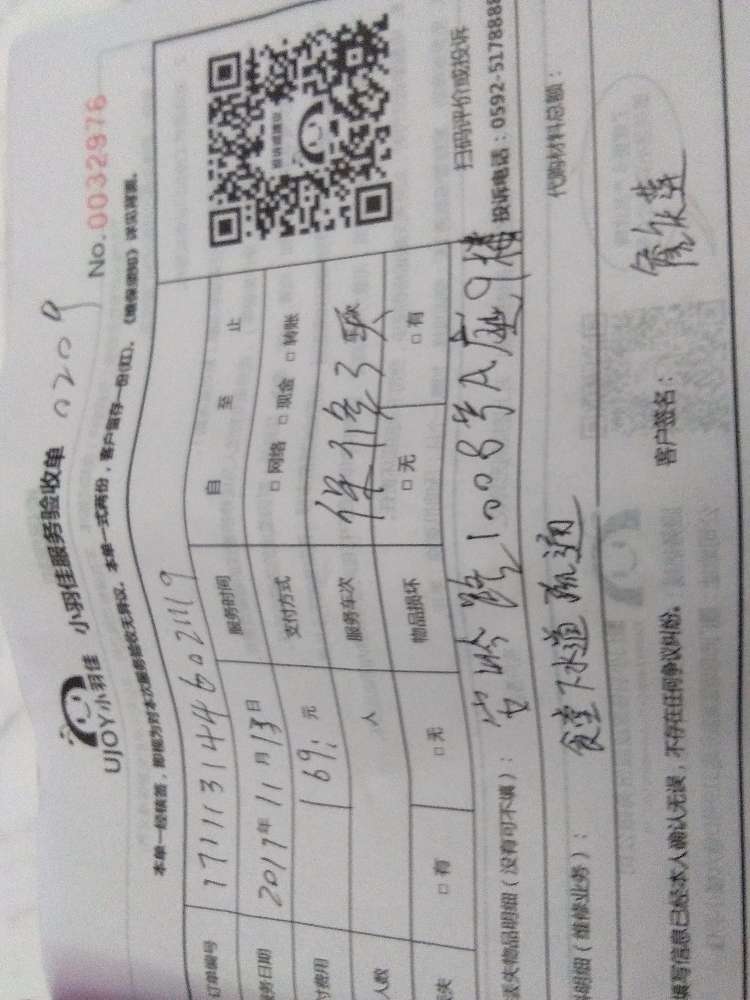 UJOY小羽佳 小羽佳服务验收单 0209
No.0032976
本单一经核签，即视为对本次服务验收无异议。本单一式两份，客户留存一份(红)。《维保须知》详见背面。
订单编号 171113144602119
服务时间 自 至 止
务日期 2017年11月13日
支付方式 □网络 □现金 □转账
付费用 169: 元
服务车次 保修3天
人数 人
物品损坏 □无 □有
失 □有 □无
扫码评价或投诉
投诉电话：0592-5178888
丢失物品明细（没有可不填）： 安岭路1008号A座9楼
明细（维修业务）： 食堂下水道疏通
代购材料总额：
填写信息已经本人确认无误，不存在任何争议纠纷。 客户签名：